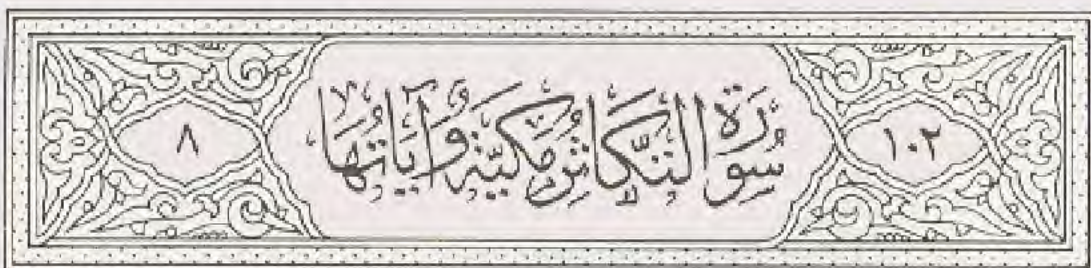 ١٠٢
سُورَةُ التَّكَاثُرِ مَكِّيَّة وَآيَاتُهَا
٨